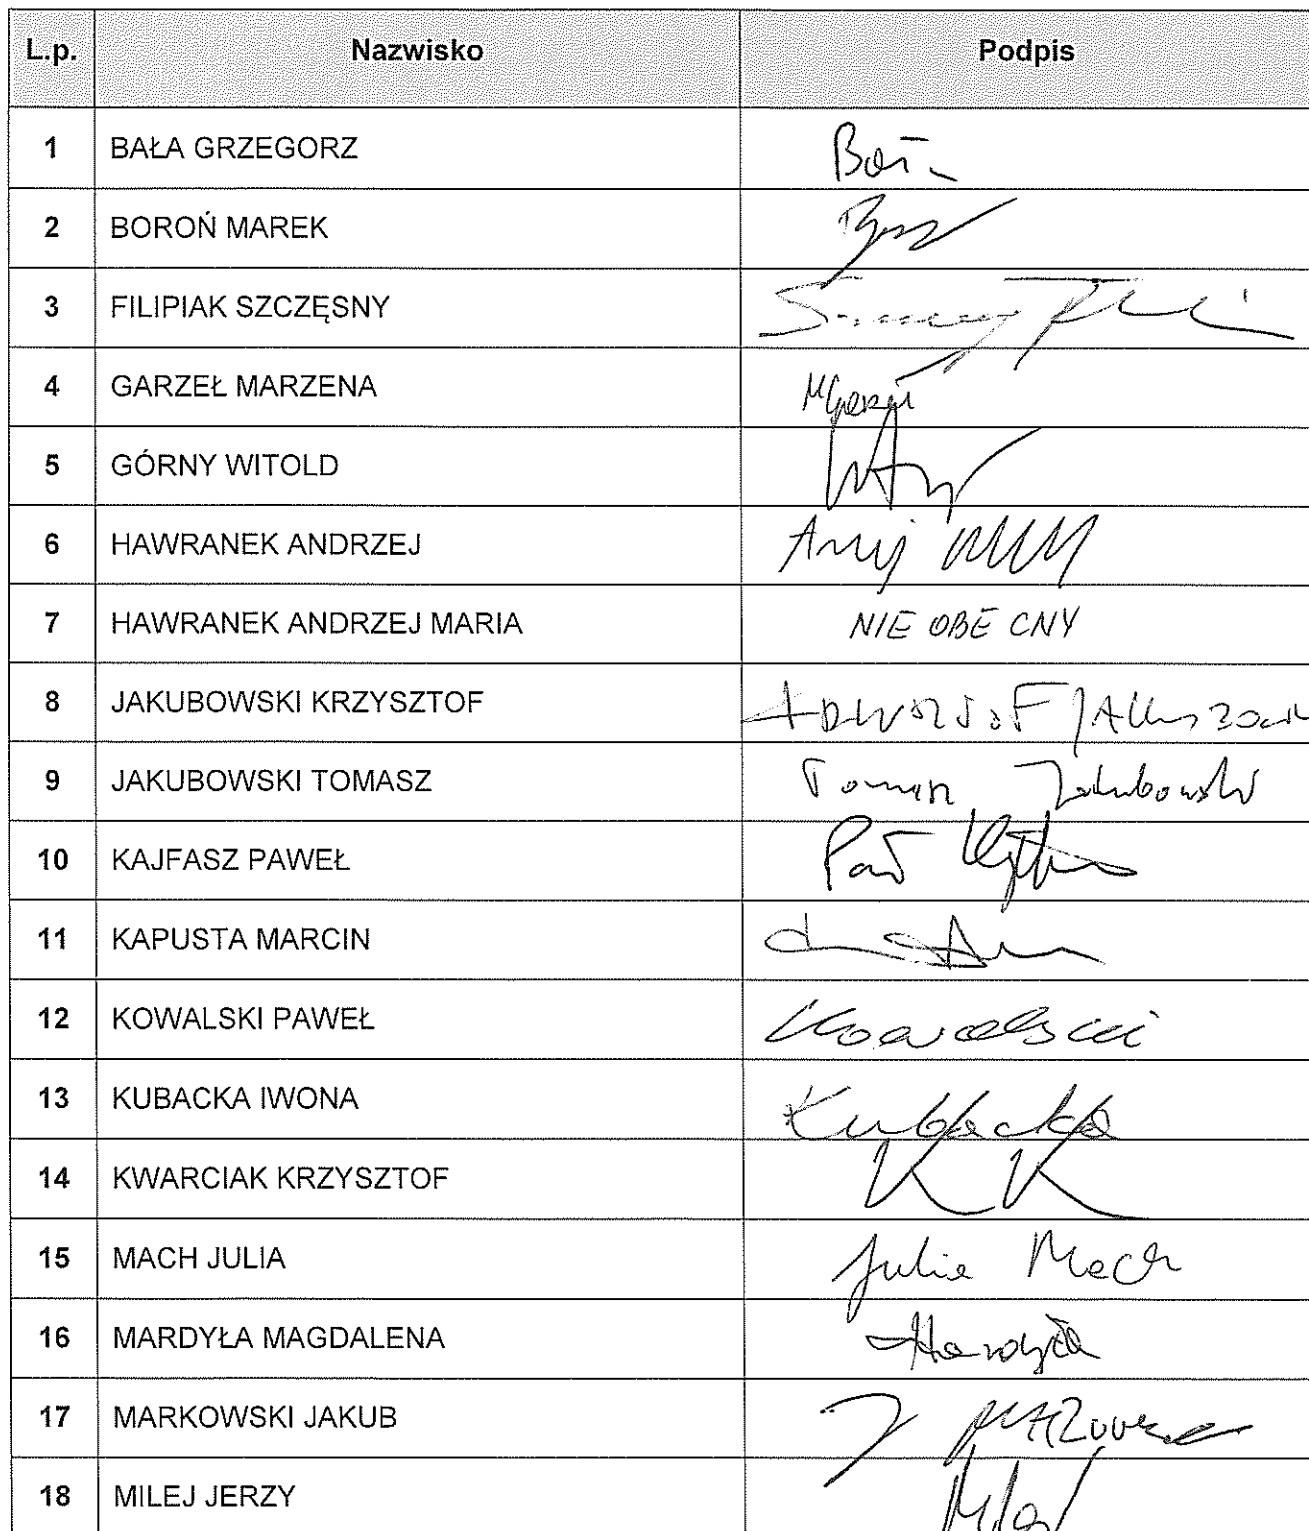 L.p. Nazwisko Podpis
1 BAŁA GRZEGORZ
2 BOROŃ MAREK
3 FILIPIAK SZCZĘSNY
4 GARZEŁ MARZENA
5 GÓRNY WITOLD
6 HAWRANEK ANDRZEJ
7 HAWRANEK ANDRZEJ MARIA NIE OBECNY
8 JAKUBOWSKI KRZYSZTOF
9 JAKUBOWSKI TOMASZ Tomasz Jakubowski
10 KAJFASZ PAWEŁ
11 KAPUSTA MARCIN
12 KOWALSKI PAWEŁ Kowalski
13 KUBACKA IWONA Kubacka
14 KWARCIAK KRZYSZTOF KK
15 MACH JULIA Julia Mach
16 MARDYŁA MAGDALENA Mardyła
17 MARKOWSKI JAKUB
18 MILEJ JERZY